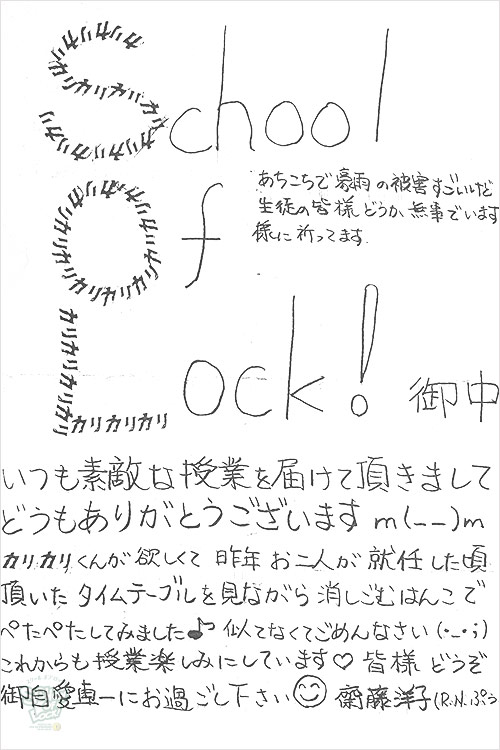 School
あちこちで豪雨の被害すごいけど
生徒の皆様どうか無事でいます
様に祈ってます.
Of
Lock! 御中
カリカリカリカリ
いつも素敵な授業を届けて頂きまして
どうもありがとうございます m(__)m
カリカリくんが欲しくて 昨年 お二人が 就任した頃
頂いた タイムテーブルを見ながら 消しごむはんこで
ぺたぺたしてみました♪ 似てなくてごめんなさい (・_・;)
これからも授業楽しみにしています♡ 皆様 どうぞ
御自愛専一にお過ごし下さい☺ 齋藤洋子(R.N.ぷう